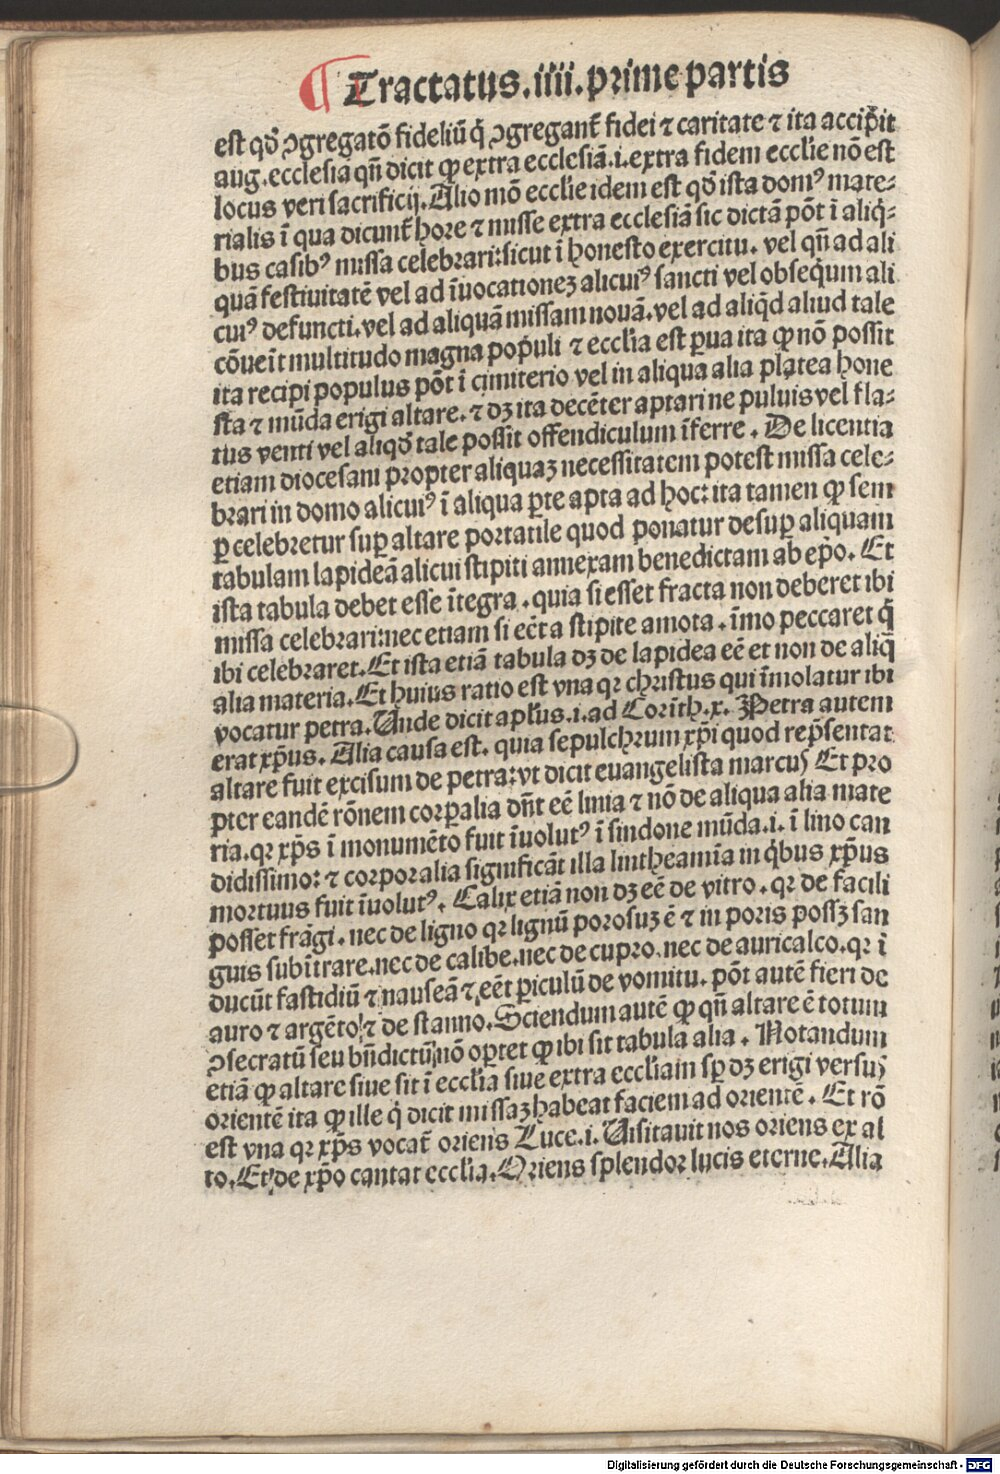 ¶ Tractatus.iiii.prime partis
est qd̕ ꝯgregatõ fideliũ q̇ ꝯgregant̃ fidei ⁊ caritate ⁊ ita accip̃it
aug.ecclesia qñ dicit ꝙ extra ecclesiã.i.extra fidem eccl̕ie nõ est
locus veri sacrificij. Alio mõ eccl̕ie idem est qd̕ ista domꝰ mate-
rialis ĩ qua dicunt̃ hore ⁊ misse extra ecclesiã sic dictã põt ĩ aliq̇-
bus casibꝰ missa celebrari:sicut ĩ honesto exercitu. vel qñ ad ali
quã festiuitatẽ vel ad ĩuocationeꝫ alicuiꝰ sancti vel obseq̇um ali
cuiꝰ defuncti.vel ad aliquã missam nouã.vel ad aliq̇d aliud tale
cõueĩt multitudo magna populi ⁊ eccl̕ia est ꝑua ita ꝙ nõ possit
ita recipi populus põt ĩ cimiterio vel in aliqua alia platea hone
sta ⁊ mũda erigi altare. ⁊ dꝫ ita decẽter aptari ne puluis vel fla-
tus venti vel aliqd̕ tale possit offendiculum ĩferre. De licentia
etiam diocesani propter aliquaꝫ necessitatem potest missa cele-
brari in domo alicuiꝰ ĩ aliqua ꝑte apta ad hoc: ita tamen ꝙ sem
ꝑ celebretur suꝑ altare portatile quod ponatur desuꝑ aliquam
tabulam lapideã alicui stipiti annexam benedictam ab ep̃o. Et
ista tabula debet esse ĩtegra. quia si esset fracta non deberet ibi
missa celebrari:nec etiam si eẽt a stipite amota. ĩmo peccaret q̇
ibi celebraret. Et ista etiã tabula dꝫ de lapidea eẽ et non de aliq̃
alia materia. Et huius ratio est vna qꝛ christus qui ĩmolatur ibi
vocatur petra. Unde dicit apl̕us.i.ad Corĩth.x. Petra autem
erat xp̃us. Alia causa est. quia sepulchrum xp̃i quod rep̃sentat
altare fuit excisum de petra:vt dicit euangelista marcus Et pro
pter eandẽ rõnem corꝑalia dñt eẽ linia ⁊ nõ de aliqua alia mate
ria.qꝛ xp̃s ĩ monumẽto fuit ĩuolutꝰ ĩ sindone mũda.i. ĩ lino can
didissimo: ⁊ corporalia significãt illa lintheamĩa in q̇bus xp̃us
mortuus fuit ĩuolutꝰ. Calix etiã non dꝫ eẽ de vitro. qꝛ de facili
posset frãgi. nec de ligno qꝛ lignũ porosuꝫ ẽ ⁊ in poris possꝫ san
guis subĩtrare.nec de calibe.nec de cupro. nec de auricalco.qꝛ ĩ
ducũt fastidiũ ⁊ nauseã ⁊ eẽt ꝑiculũ de vomitu. põt autẽ fieri de
auro ⁊ argẽto ⁊ de stanno. Sciendum autẽ ꝙ qñ altare ẽ totum
ꝯsecratũ seu bñdictũ nõ oꝑtet ꝙ ibi sit tabula alia. Notandum
etiã ꝙ altare siue sit ĩ eccl̕ia siue extra eccl̕iam sꝑ dꝫ erigi versus
orientẽ ita ꝙ ille q̇ dicit missaꝫ habeat faciem ad orientẽ. Et rõ
est vna qꝛ xp̃s vocat̃ oriens Luce.i. Uisitauit nos oriens ex al
to. Et de xp̃o cantat eccl̕ia. Oriens splendor lucis eterne. Alia
Digitalisierung gefördert durch die Deutsche Forschungsgemeinschaft - DFG